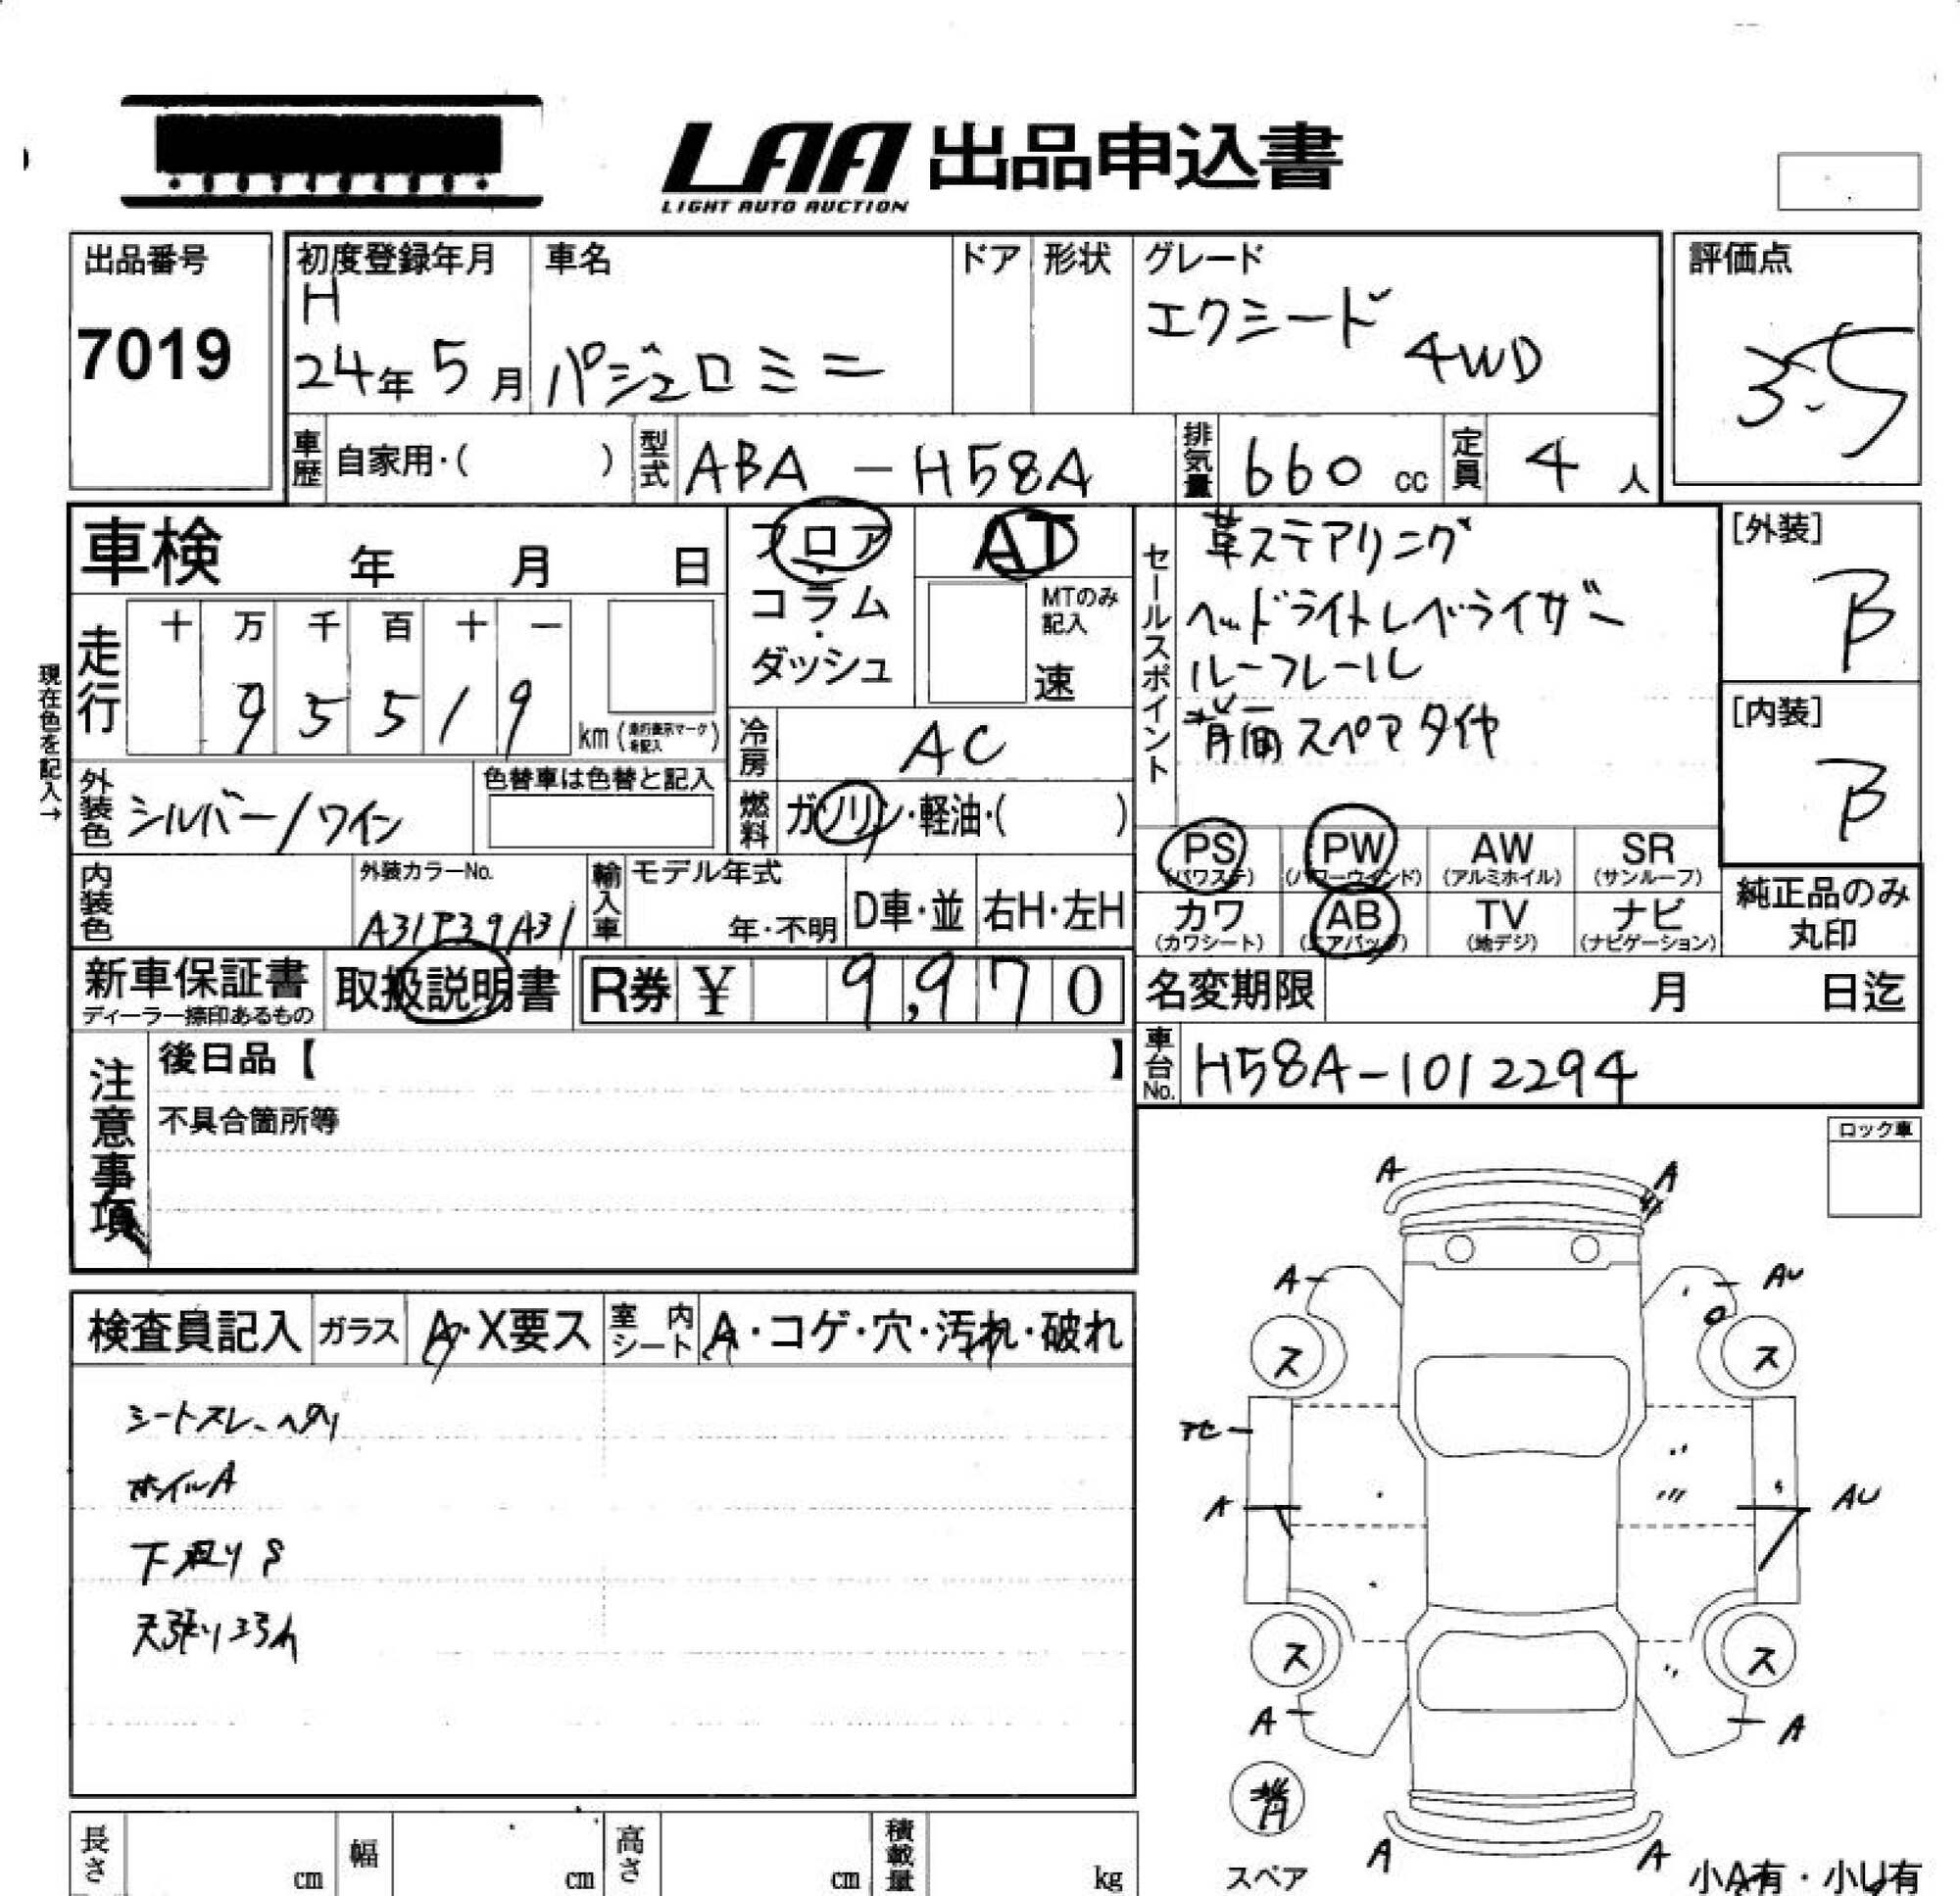 LAA 出品申込書
LIGHT AUTO AUCTION
出品番号
7019
初度登録年月
H
24年 5月
車名
パジェロミニ
ドア
形状
グレード
エクシード
4WD
評価点
3.5
車歴 自家用・( )
型式 ABA - H58A
排気量 660 cc
定員 4 人
車検 年 月 日
フロア・コラム・ダッシュ
AT
MTのみ記入
速
セールスポイント
革ステアリング
ヘッドライトレベライザー
ルーフレール
背面スペアタイヤ
[外装]
B
[内装]
B
現在色を記入→
走行 十 万 千 百 十 一
9 5 5 1 9
km
冷房 AC
外装色 シルバー/ワイン
色替車は色替と記入
燃料 ガソリン・軽油・( )
PS (パワステ)
PW (パワーウインド)
AW (アルミホイル)
SR (サンルーフ)
カワ (カワシート)
AB (エアバッグ)
TV (地デジ)
ナビ (ナビゲーション)
純正品のみ
丸印
内装色
外装カラーNo.
A31P39A31
輸入車 モデル年式
年・不明
D車・並
右H・左H
新車保証書
ディーラー捺印あるもの
取扱説明書
R券 ¥ 9,970
名変期限 月 日迄
車台No. H58A-1012294
注意事項
後日品【 】
不具合箇所等
ロック車
検査員記入
ガラス A・X要ス
室内シート A・コゲ・穴・汚れ・破れ
シートスレ、ヘタリ
ホイルA
下廻りS
天張りヨゴレ
A
A
A
AU
ス
ス
A
AU
ス
ス
A
A
背
スペア
A
A
小A有・小U有
長さ cm
幅 cm
高さ cm
積載量 kg